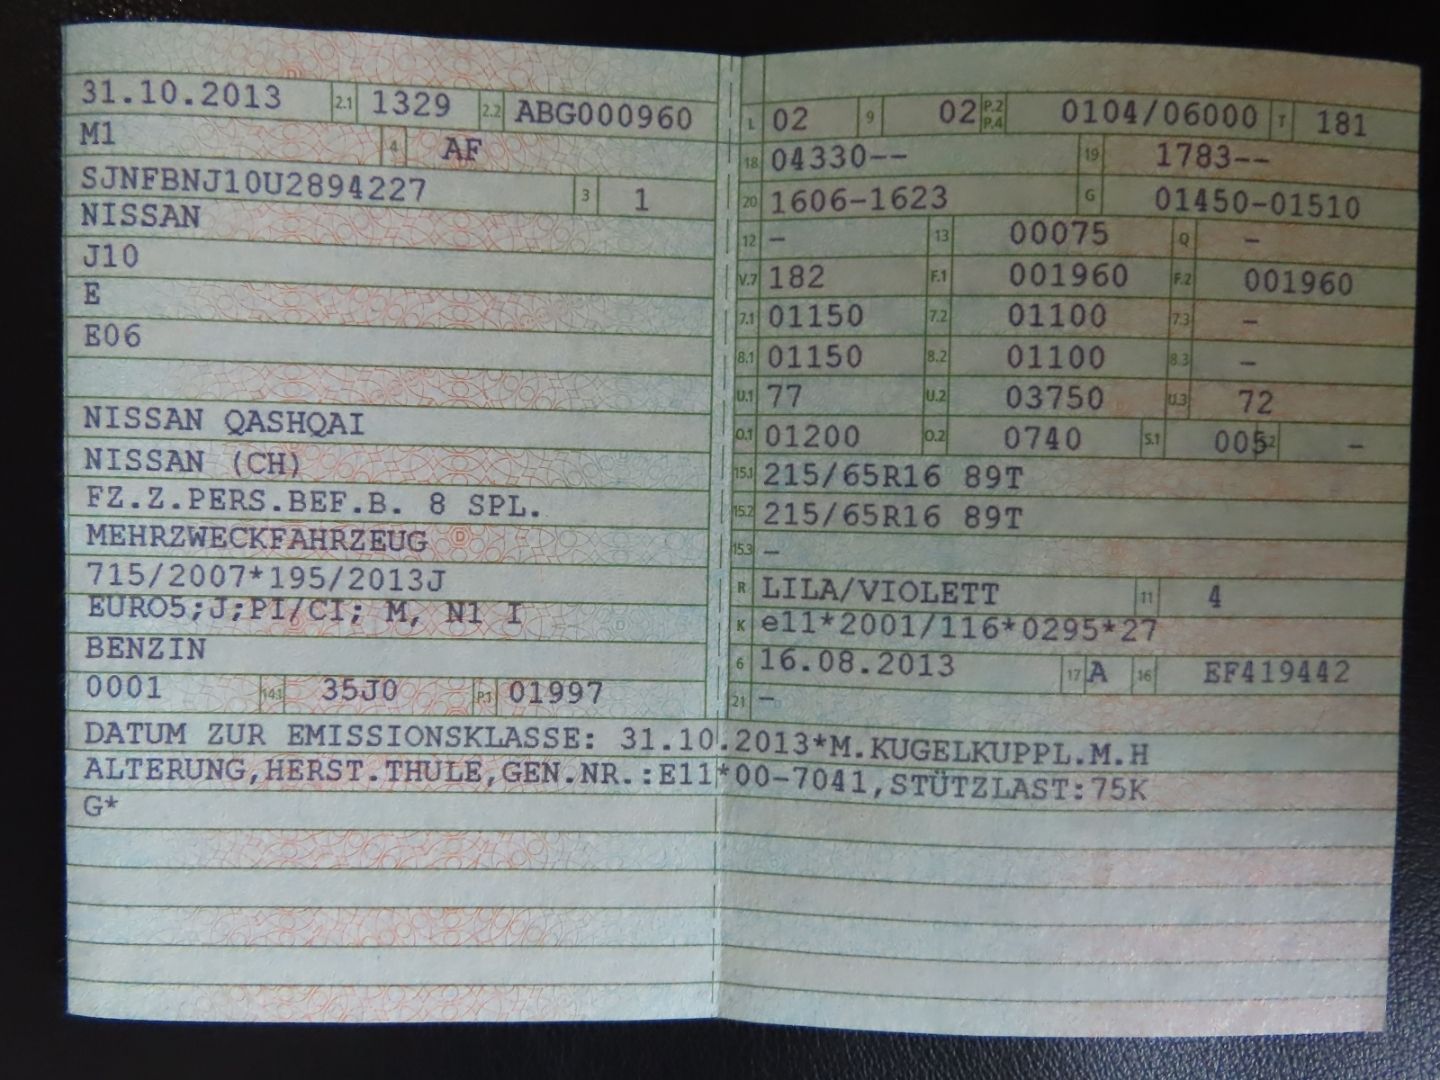 31.10.2013 2.1 1329 2.2 ABG000960
M1 4 AF
SJNFBNJ10U2894227 3 1
NISSAN
J10
E
E06
NISSAN QASHQAI
NISSAN (CH)
FZ.Z.PERS.BEF.B. 8 SPL.
MEHRZWECKFAHRZEUG
715/2007*195/2013J
EURO5;J;PI/CI; M, N1 I
BENZIN
0001 14.1 35J0 P.1 01997
L 02 9 02 P.2 P.4 0104/06000 T 181
18 04330-- 19 1783--
20 1606-1623 G 01450-01510
12 – 13 00075 Q –
V.7 182 F.1 001960 F.2 001960
7.1 01150 7.2 01100 7.3 –
8.1 01150 8.2 01100 8.3 –
U.1 77 U.2 03750 U.3 72
O.1 01200 O.2 0740 S.1 005 S.2 –
15.1 215/65R16 89T
15.2 215/65R16 89T
15.3 –
R LILA/VIOLETT 11 4
K e11*2001/116*0295*27
6 16.08.2013 17 A 16 EF419442
21 –
DATUM ZUR EMISSIONSKLASSE: 31.10.2013*M.KUGELKUPPL.M.H
ALTERUNG,HERST.THULE,GEN.NR.:E11*00-7041,STÜTZLAST:75K
G*